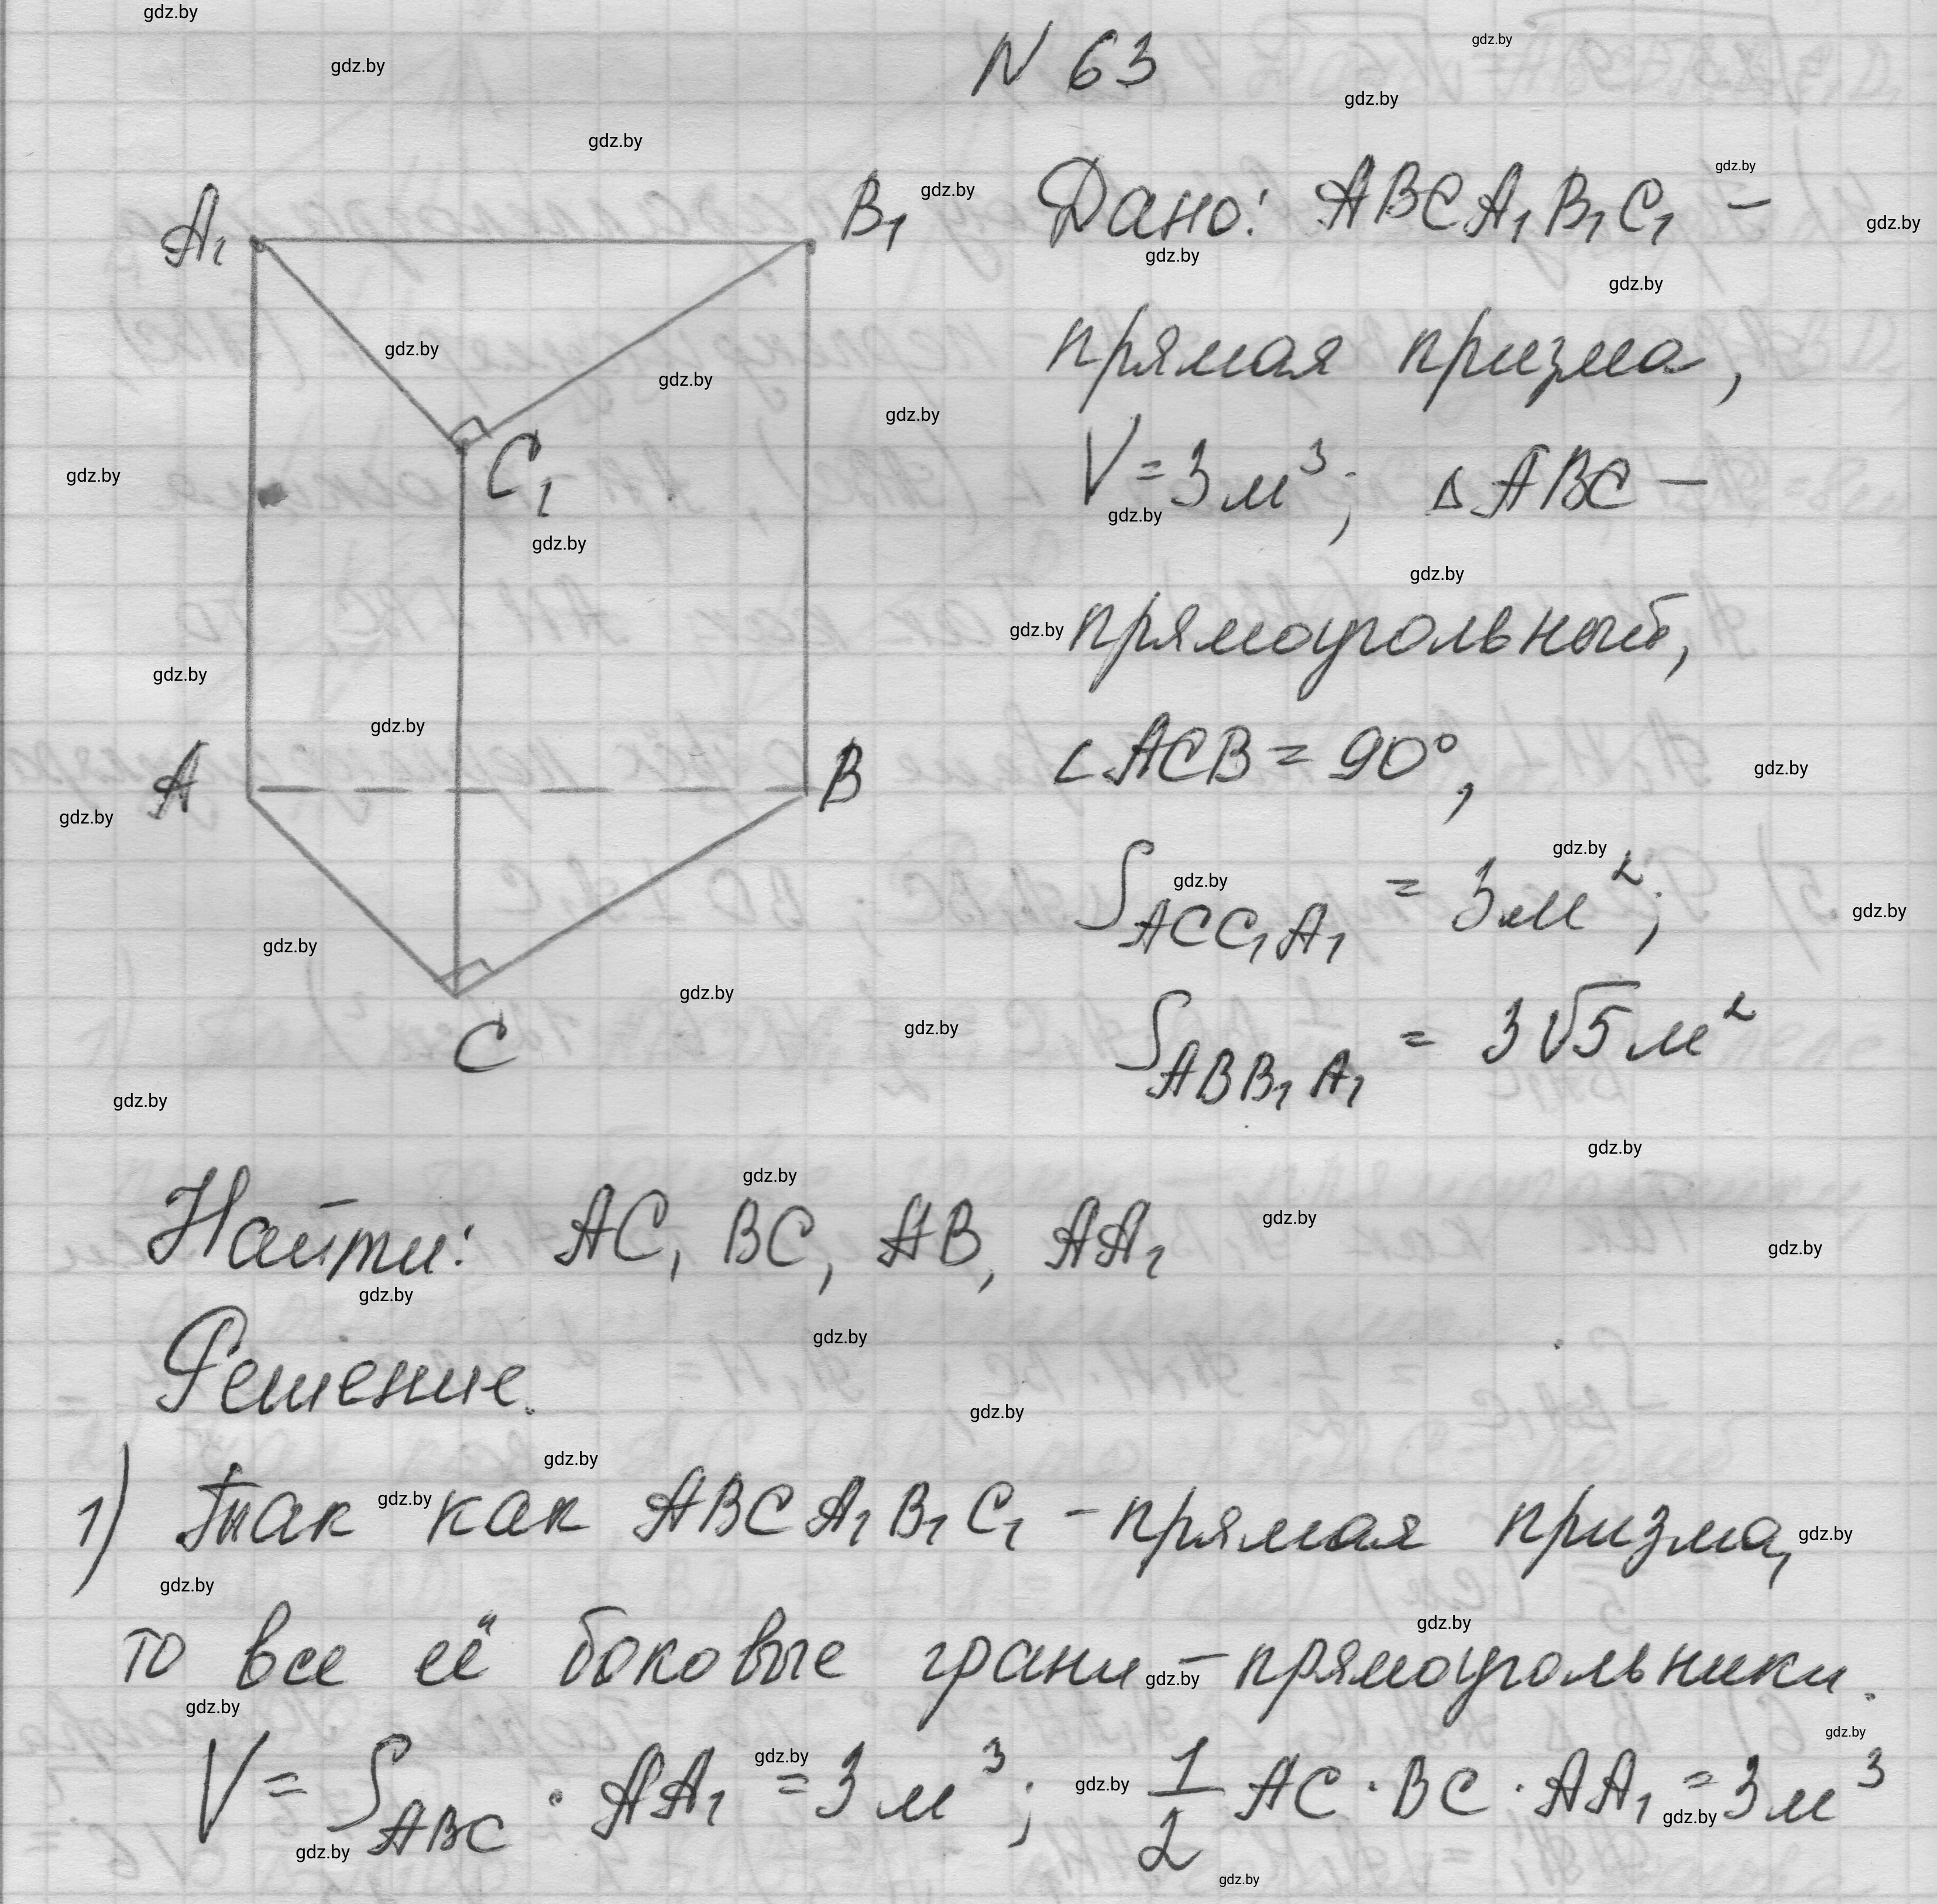 N 63
A₁
B₁
C₁
A
B
C
Дано: ABCA₁B₁C₁ –
прямая призма,
V = 3 м³; △ABC –
прямоугольный,
∠ACB = 90°,
S_ACC₁A₁ = 3 м²;
S_ABB₁A₁ = 3√5 м²
Найти: AC, BC, AB, AA₁
Решение.
1) Так как ABCA₁B₁C₁ – прямая призма,
то все её боковые грани – прямоугольники.
V = S_ABC · AA₁ = 3 м³; 1/2 AC · BC · AA₁ = 3 м³
gdz.by